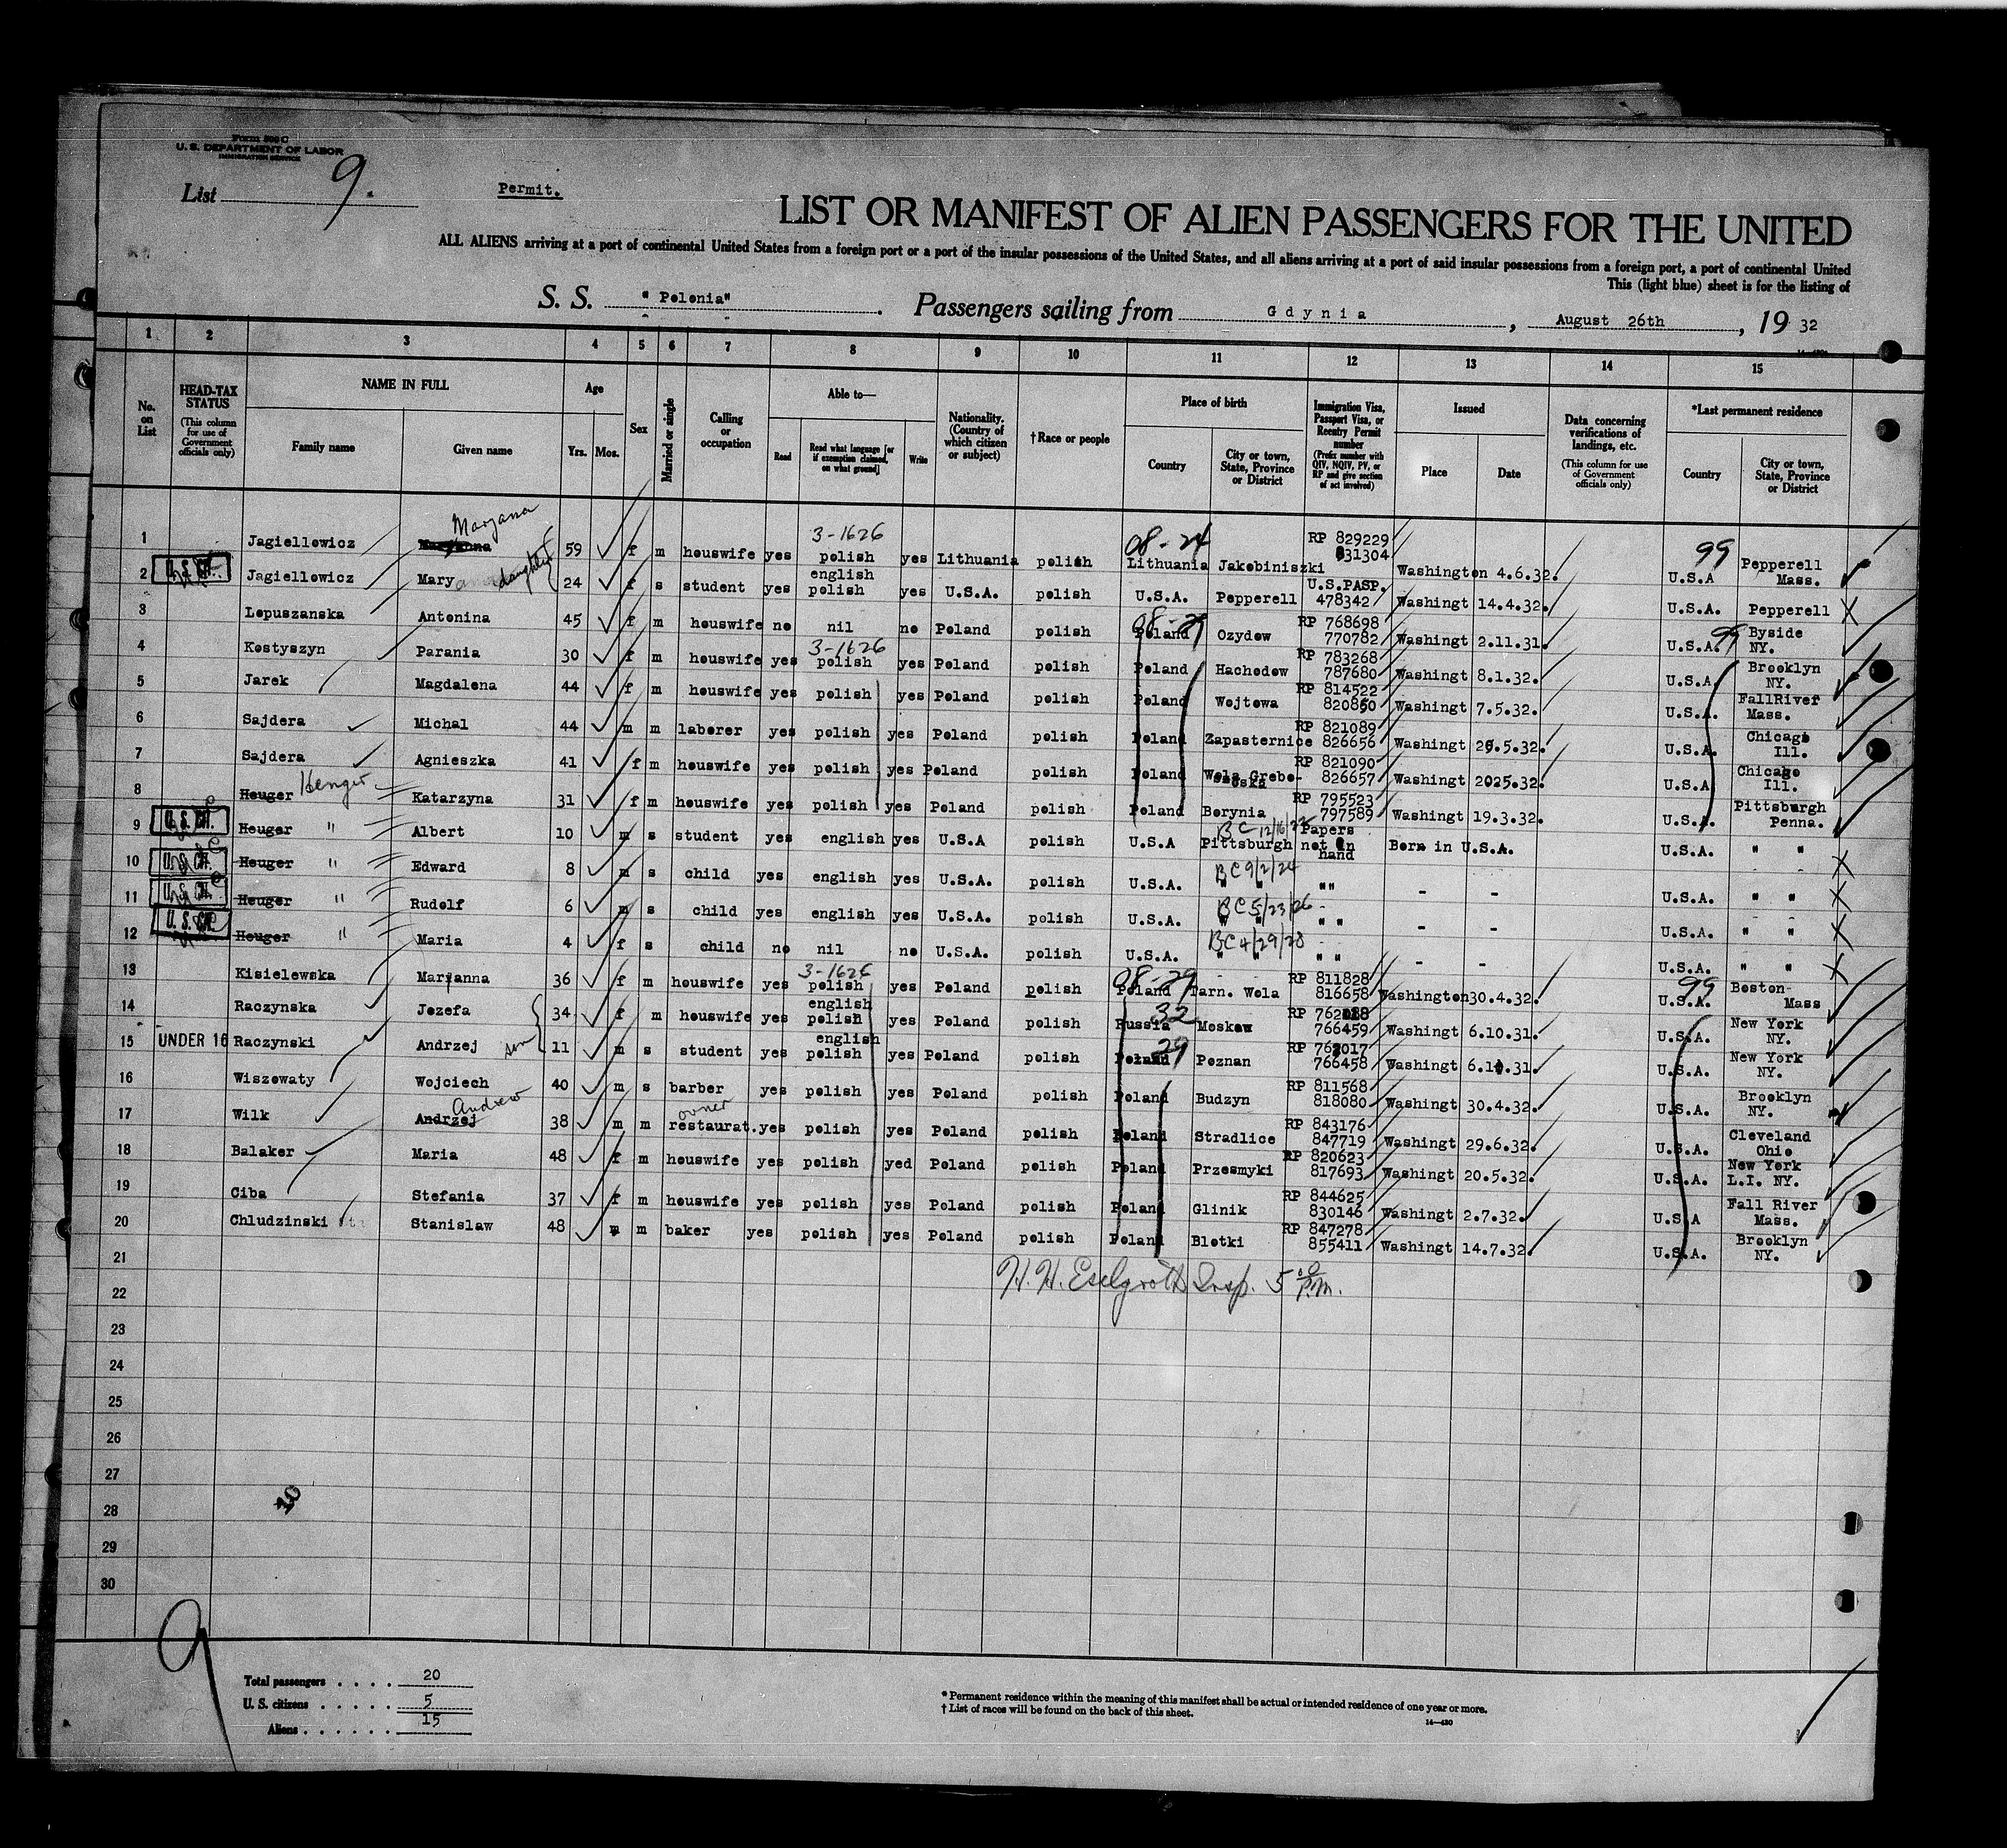 Form 500 C
U. S. DEPARTMENT OF LABOR
IMMIGRATION SERVICE
List 9.
Permit.
LIST OR MANIFEST OF ALIEN PASSENGERS FOR THE UNITED
ALL ALIENS arriving at a port of continental United States from a foreign port or a port of the insular possessions of the United States, and all aliens arriving at a port of said insular possessions from a foreign port, a port of continental United
This (light blue) sheet is for the listing of
S. S. "Polonia" Passengers sailing from Gdynia, August 26th, 19 32
1 2 3 4 5 6 7 8 9 10 11 12 13 14 15
No. on List
HEAD-TAX STATUS (This column for use of Government officials only)
NAME IN FULL Family name Given name
Age Yrs. Mos.
Sex
Married or single
Calling or occupation
Able to— Read Read what language [or if exemption claimed, on what ground] Write
Nationality. (Country of which citizen or subject)
†Race or people
Place of birth Country City or town, State, Province or District
Immigration Visa, Passport Visa, or Reentry Permit number (Prefix number with QIV, NQIV, PV, or RP and give section of act involved)
Issued Place Date
Data concerning verifications of landings, etc. (This column for use of Government officials only)
*Last permanent residence Country City or town, State, Province or District
1 Jagiellowicz Maryanna 59 f m housewife yes 3-1626 polish yes Lithuania polish 08-24 Lithuania Jakobiniszki RP 829229 831304 Washington 4.6.32. 99 U.S.A Pepperell Mass.
2 U.S. Cit. Jagiellowicz Mary daughter 24 f s student yes english polish yes U.S.A. polish U.S.A. Pepperell U.S.PASP. 478342 Washingt 14.4.32. U.S.A. Pepperell
3 Lopuszanska Antonina 45 f m housewife no nil no Poland polish 08-29 Poland Ozydow RP 768698 770782 Washingt 2.11.31. U.S.A. 99 Byside NY.
4 Kostyszyn Parania 30 f m housewife yes 3-1626 polish yes Poland polish Poland Hachodow RP 783268 787680 Washingt 8.1.32. U.S.A. Brooklyn NY.
5 Jarek Magdalena 44 f m housewife yes polish yes Poland polish Poland Wojtowa RP 814522 820850 Washingt 7.5.32. U.S.A. FallRiver Mass.
6 Sajdera Michal 44 m m laborer yes polish yes Poland polish Poland Zapasternice RP 821089 826656 Washingt 5.32. U.S.A. Chicago Ill.
7 Sajdera Agnieszka 41 f m housewife yes polish yes Poland polish Poland Wola Grebo- RP 821090 826657 Washingt 2025.32. U.S.A Chicago Ill.
8 Heuger Henger Katarzyna 31 f m housewife yes polish yes Poland polish Poland Borynia RP 795523 797589 Washingt 19.3.32. U.S.A. Pittsburgh Penna.
9 U.S. Cit. Heuger " Albert 10 m s student yes english yes U.S.A polish U.S.A BC 12/16/22 Pittsburgh Papers not on hand Born in U.S.A. U.S.A. " "
10 U.S. Cit. Heuger " Edward 8 m s child yes english yes U.S.A. polish U.S.A. BC 9/2/24 " " "" - - U.S.A. " "
11 U.S. Cit. Heuger " Rudolf 6 m s child yes english yes U.S.A. polish U.S.A. BC 5/23/26 " " "" - - U.S.A. " "
12 U.S. Cit. Heuger " Maria 4 f s child no nil no U.S.A. polish U.S.A. BC 4/29/28 " " "" - - U.S.A. " "
13 Kisielewska Marianna 36 f m housewife yes 3-1626 polish yes Poland polish 08-29 Poland Tarn. Wola RP 811828 816658 Washington 30.4.32. 99 U.S.A. Boston- Mass
14 Raczynska Jozefa 34 f m housewife yes english polish yes Poland polish 32 Russia Moskow RP 766459 Washingt 6.10.31. U.S.A. New York NY.
15 UNDER 16 Raczynski Andrzej son 11 m s student yes english polish yes Poland polish 29 Poland Poznan RP 766458 Washingt 6.10.31. U.S.A. New York NY.
16 Wiszowaty Wojciech 40 m s barber yes polish yes Poland polish Poland Budzyn RP 811568 818080 Washingt 30.4.32. U.S.A. Brooklyn NY.
17 Wilk Andrzej Andrew 38 m m owner restaurat. yes polish yes Poland polish Poland Stradlice RP 843176 847719 Washingt 29.6.32. U.S.A. Cleveland Ohio
18 Balaker Maria 48 f m housewife yes polish yed Poland polish Poland Przesmyki RP 820623 817693 Washingt 20.5.32. U.S.A. New York L.I. NY.
19 Ciba Stefania 37 f m housewife yes polish yes Poland polish Poland Glinik RP 844625 830146 Washingt 2.7.32. U.S.A Fall River Mass.
20 Chludzinski Stanislaw 48 m m baker yes polish yes Poland polish Poland Blotki RP 847278 855411 Washingt 14.7.32. U.S.A. Brooklyn NY.
21
H. H. Eselgroth Insp. 5 00 P.M.
22
23
24
25
26
27
28
29
30
9
Total passengers . . . . 20
U. S. citizens . . . . . 5
Aliens . . . . . . 15
* Permanent residence within the meaning of this manifest shall be actual or intended residence of one year or more.
† List of races will be found on the back of this sheet.
14—430